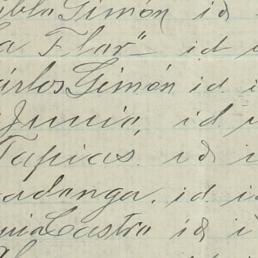 ablo Simón id
a Flor" id
árlos Simón id i
Junio, id
Tapias id i
adanga, id i
nia Castro id i